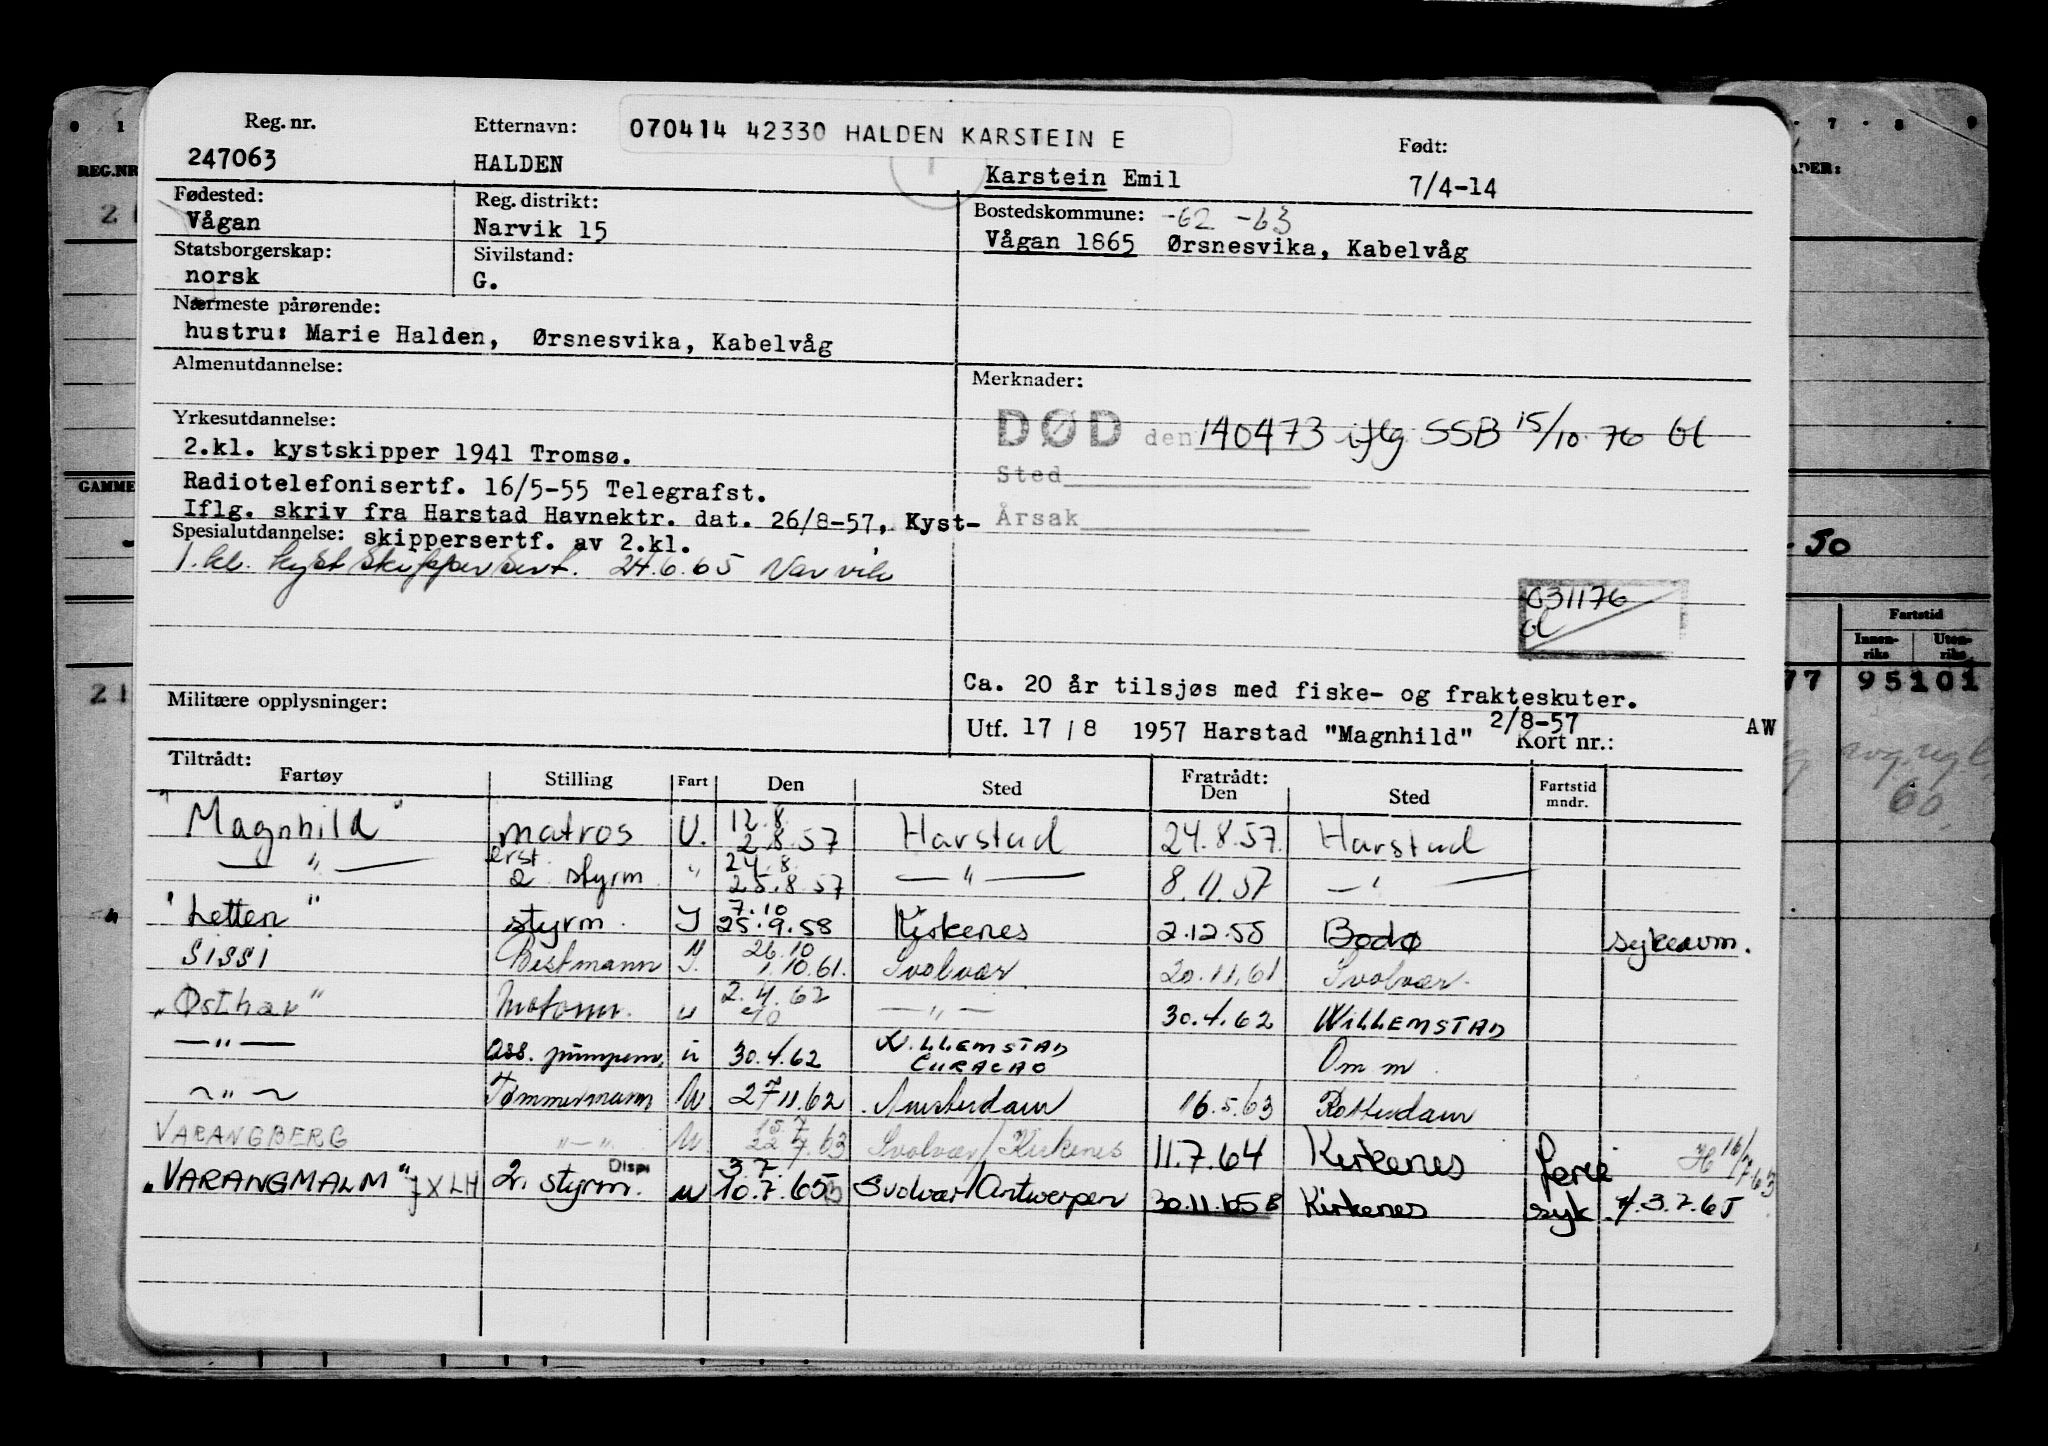 Reg. nr.
247063
Etternavn:
070414 42330 HALDEN KARSTEIN E
HALDEN
Karstein Emil
Født:
7/4-14
Fødested:
Vågan
Reg. distrikt:
Narvik 15
Bostedskommune: -62 -63
Vågan 1865 Ørsnesvika, Kabelvåg
Statsborgerskap:
norsk
Sivilstand:
G.
Nærmeste pårørende:
hustru: Marie Halden, Ørsnesvika, Kabelvåg
Almenutdannelse:
Merknader:
Yrkesutdannelse:
2.kl. kystskipper 1941 Tromsø.
Radiotelefonisertf. 16/5-55 Telegrafst.
Iflg. skriv fra Harstad Havnektr. dat. 26/8-57, Kyst-
Spesialutdannelse: skippersertf. av 2.kl.
1. kl. kystskippersert. 24.6.65 Narvik
DØD den 140473 iflg SSB 15/10 76 Gl
Sted
Årsak
031176
Gl
Militære opplysninger:
Ca. 20 år tilsjøs med fiske- og frakteskuter.
Utf. 17/8 1957 Harstad "Magnhild" 2/8-57
Kort nr.:
AW
Tiltrådt:
Fartøy Stilling Fart Den Sted Fratrådt: Den Sted Fartstid mndr.
"Magnhild" matros U. 12.8. 2.8.57 Harstad 24.8.57. Harstad
— " — erst. 2 styrm " 24.8. 25.8.57 — " — 8.11.57 — " —
"Letten" styrm. I 7.10 25.9.58 Kirkenes 2.12.58 Bodø sykeavm.
SISSI Bestmann 26.10 1.10.61. Svolvær 20.11.61 Svolvær.
"Østhav" Motorm. u 2.4.62 — " — 30.4.62 WILLEMSTAD
— " — ass. pumpem. u 30.4.62 WILLEMSTAD CURACAO Om m
— " — Tømmermann U. 27.11.62 Amsterdam 16.5.63 Rotterdam
VARANGBERG — " — U 15.7 22.7.63 Svolvær/Kirkenes 11.7.64 Kirkenes ferie 16/7 63
"VARANGMALM" JXLH 2. styrm. Disp. u 3.7. 10.7.65 Svolvær/Antwerpen 30.11.65 Kirkenes syk. 3.7.65
0 1
REG.NR
21
GAMME
21
7 8 9
- 50
Fartstid
Innen-
riks
Uten-
riks
77 95101
60.